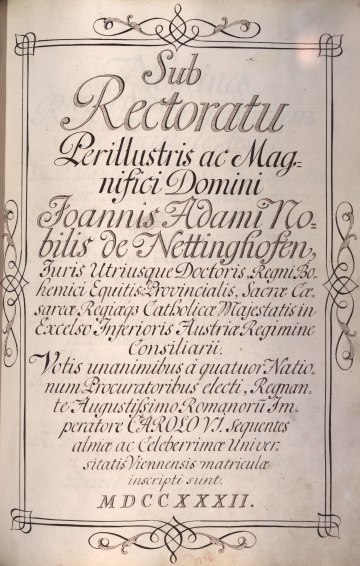 Sub
Rectoratu
Perillustris ac Mag-
nifici Domini
Joannis Adami No-
bilis de Nettinghofen,
Juris Utriusque Doctoris, Regni Bo-
hemici Equitis Provincialis, Sacræ Cæ-
sareæ Regiæq₃ Catholicæ Majestatis in
Excelso Inferioris Austriæ Regimine
Consiliarii.
Votis unanimibus á quatuor Natio-
num Procuratoribus electi, Regnan-
te Augustißimo Romanorū Im-
peratore CAROLO VI. sequentes
almæ ac Celeberrimæ Univer-
sitatis Viennensis matriculæ
inscripti sunt.
MDCCXXXII.